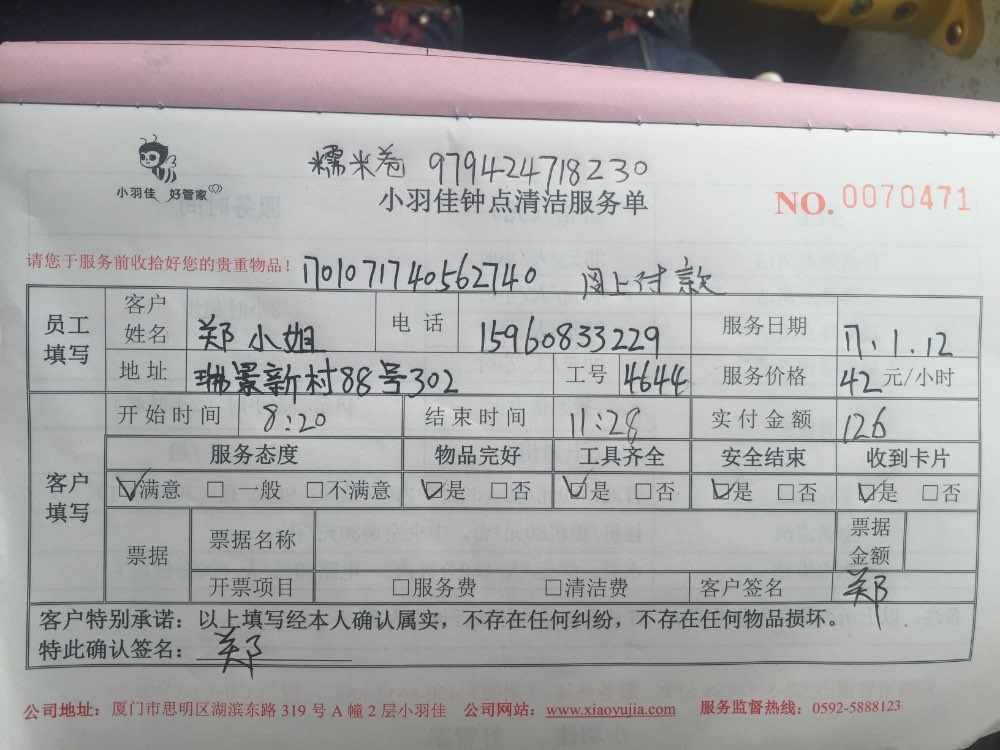 糯米卷 979424718230
小羽佳 好管家
小羽佳钟点清洁服务单
NO. 0070471
请您于服务前收拾好您的贵重物品！
170107174056２740 网上付款
员工填写 客户姓名 郑小姐 电话 15960833229 服务日期 17.1.12
地址 瑞景新村88号302 工号 4644 服务价格 42元/小时
客户填写 开始时间 8:20 结束时间 11:28 实付金额 126
服务态度 物品完好 工具齐全 安全结束 收到卡片
☑满意 □一般 □不满意 ☑是 □否 ☑是 □否 ☑是 □否 ☑是 □否
票据 票据名称 票据金额
开票项目 □服务费 □清洁费 客户签名 郑
客户特别承诺：以上填写经本人确认属实，不存在任何纠纷，不存在任何物品损坏。
特此确认签名：郑
公司地址：厦门市思明区湖滨东路 319 号 A 幢 2 层小羽佳 公司网站：www.xiaoyujia.com 服务监督热线：0592-5888123